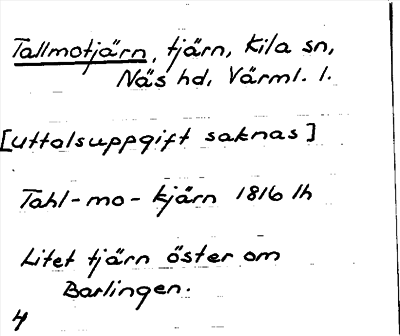 Tallmotjärn, tjärn, Kila sn,
Näs hd, Värml. l.
[uttalsuppgift saknas]
Tahl-mo-kjärn 1816 lh
Litet tjärn öster om
Barlingen.
4